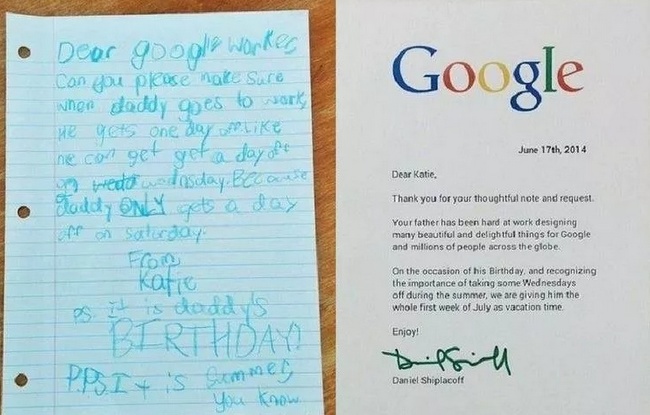 Dear google worker
Can you please make sure
when daddy goes to work,
He gets one day off. Like
he can get get a day off
on weda wednsday. BECause
daddy ONLY gets a day
off on Saturday.
From,
Katie
P.S. It is daddy's
BIRTHDAY!
P.P.S. It is summer,
you know
Google
June 17th, 2014
Dear Katie,
Thank you for your thoughtful note and request.
Your father has been hard at work designing
many beautiful and delightful things for Google
and millions of people across the globe.
On the occasion of his Birthday, and recognizing
the importance of taking some Wednesdays
off during the summer, we are giving him the
whole first week of July as vacation time.
Enjoy!
Daniel Shiplacoff